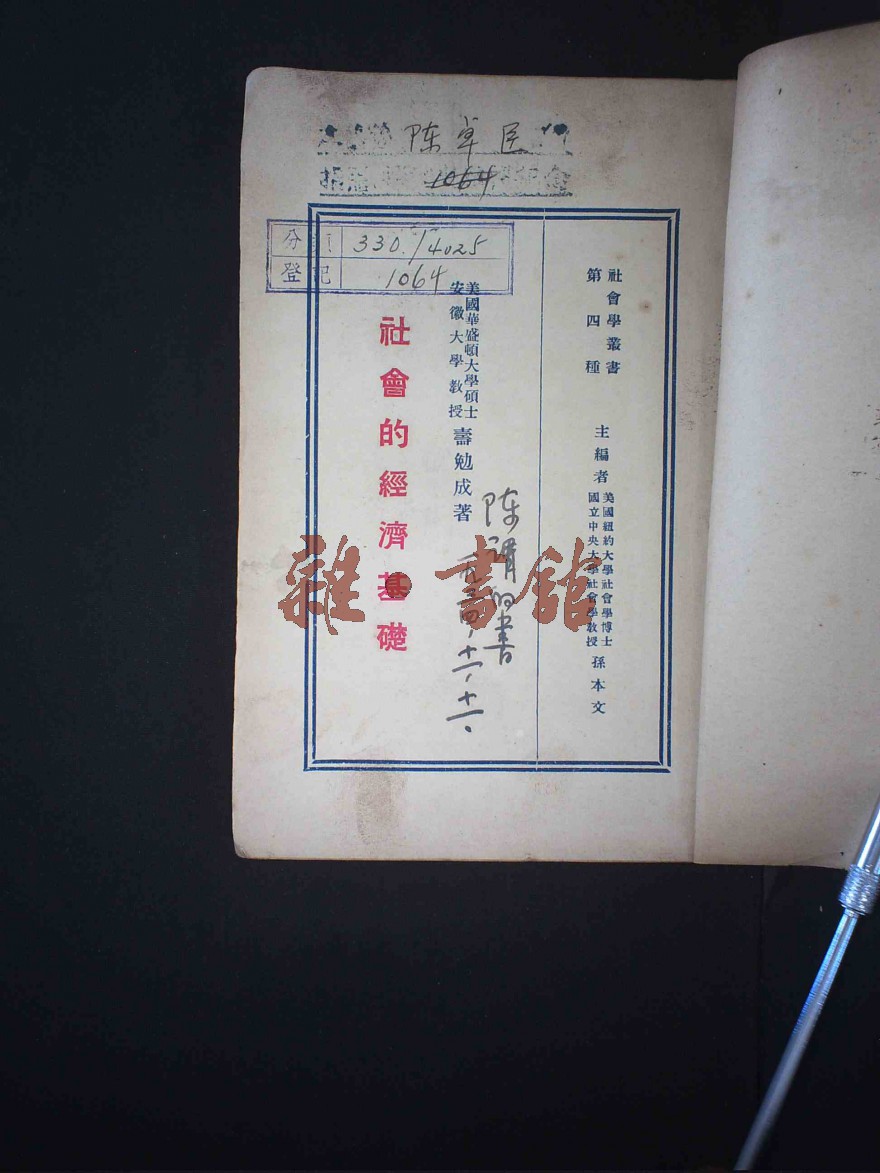 陈卓臣
1064
分類 330./4025
登記 1064
社會學叢書
第四種
主編者
美國紐約大學社會學博士
國立中央大學社會學教授
孫本文
美國華盛頓大學碩士
安徽大學教授
壽勉成著
社會的經濟基礎
陈
书
十一、十一。
雜·書館